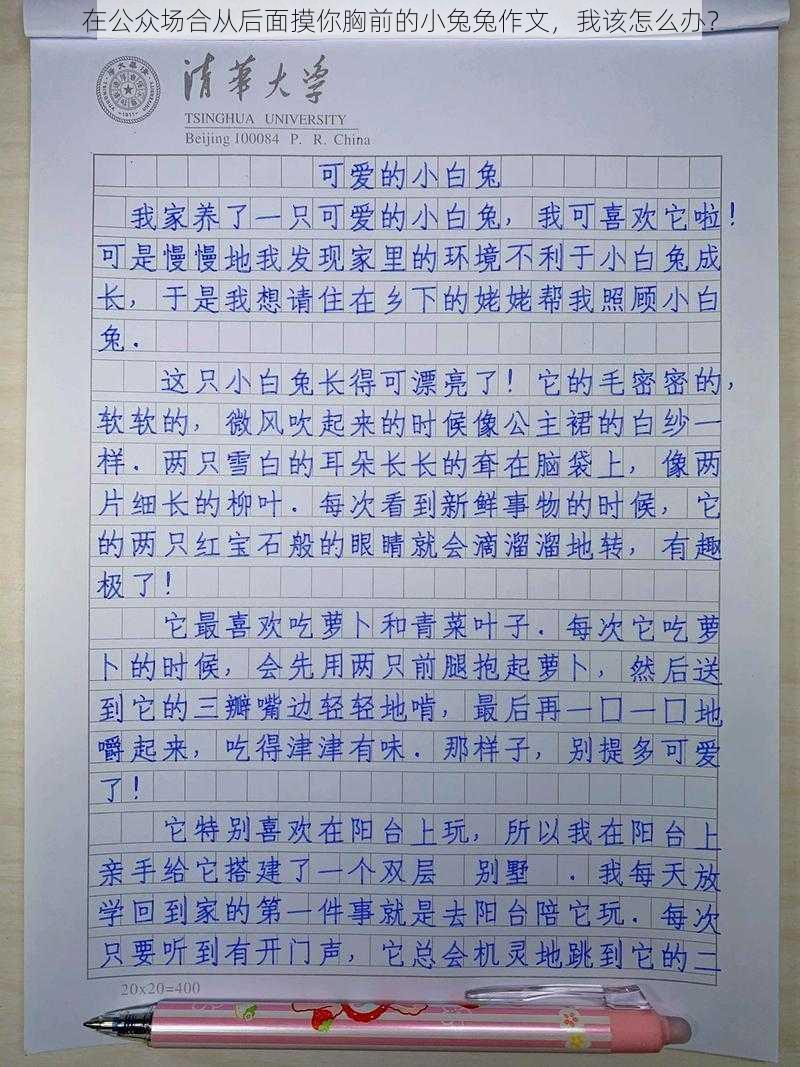 在公众场合从后面摸你胸前的小兔兔作文，我该怎么办?
清华大学
TSINGHUA UNIVERSITY
Beijing 100084 P. R. China
可爱的小白兔
我家养了一只可爱的小白兔，我可喜欢它啦！
可是慢慢地我发现家里的环境不利于小白兔成
长，于是我想请住在乡下的姥姥帮我照顾小白
兔.
这只小白兔长得可漂亮了！它的毛密密的，
软软的，微风吹起来的时候像公主裙的白纱一
样.两只雪白的耳朵长长的耷在脑袋上，像两
片细长的柳叶.每次看到新鲜事物的时候，它
的两只红宝石般的眼睛就会滴溜溜地转，有趣
极了！
它最喜欢吃萝卜和青菜叶子.每次它吃萝
卜的时候，会先用两只前腿抱起萝卜，然后送
到它的三瓣嘴边轻轻地啃，最后再一口一口地
嚼起来，吃得津津有味.那样子，别提多可爱
了！
它特别喜欢在阳台上玩，所以我在阳台上
亲手给它搭建了一个双层 别墅 .我每天放
学回到家的第一件事就是去阳台陪它玩.每次
只要听到有开门声，它总会机灵地跳到它的二
20x20=400